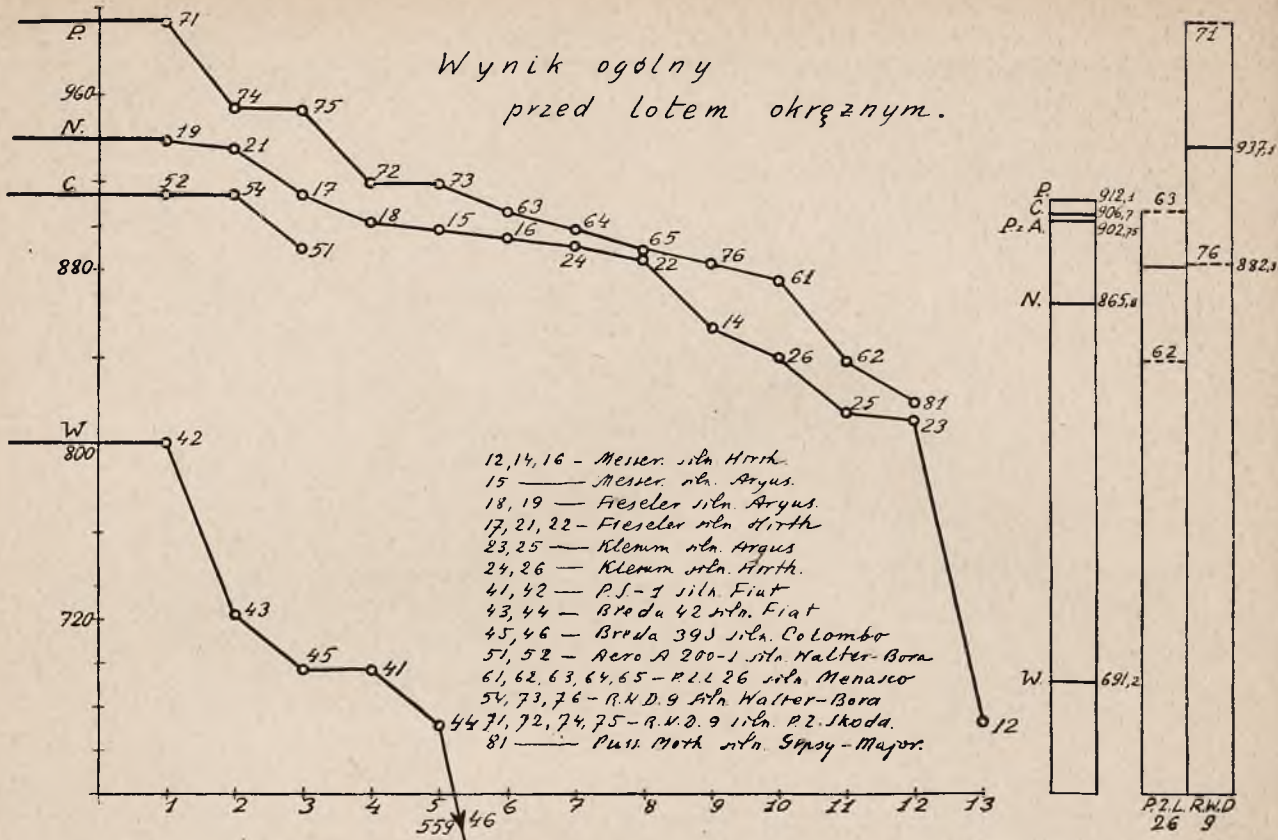 Wynik ogólny
przed lotem okrężnym.
P.
960
N.
C.
880
W
800
720
71
74
75
72
73
63
64
65
76
61
62
81
19
21
17
18
15
16
24
22
14
26
25
23
12
52
54
51
42
43
45
41
44
559
46
12, 14, 16 — Messer. siln. Hirth.
15 — Messer. siln. Argus.
18, 19 — Fieseler siln. Argus.
17, 21, 22 — Fieseler siln. Hirth
23, 25 — Klemm siln. Argus
24, 26 — Klemm siln. Hirth.
41, 42 — P.S.-1 siln. Fiat
43, 44 — Breda 42 siln. Fiat
45, 46 — Breda 39S siln. Colombo
51, 52 — Aero A 200-1 siln. Walter-Bora
61, 62, 63, 64, 65 — P.Z.L 26 siln. Menasco
54, 73, 76 — R.W.D. 9 siln. Walter-Bora
71, 72, 74, 75 — R.W.D. 9 siln. P.Z. Skoda.
81 — Puss Moth siln. Gypsy-Major.
1 2 3 4 5 6 7 8 9 10 11 12 13
P. 912,1
C. 906,7
P.z A. 902,75
N. 865,8
W. 691,2
63
62
71
937,1
76
882,3
P.Z.L. R.W.D
26 9